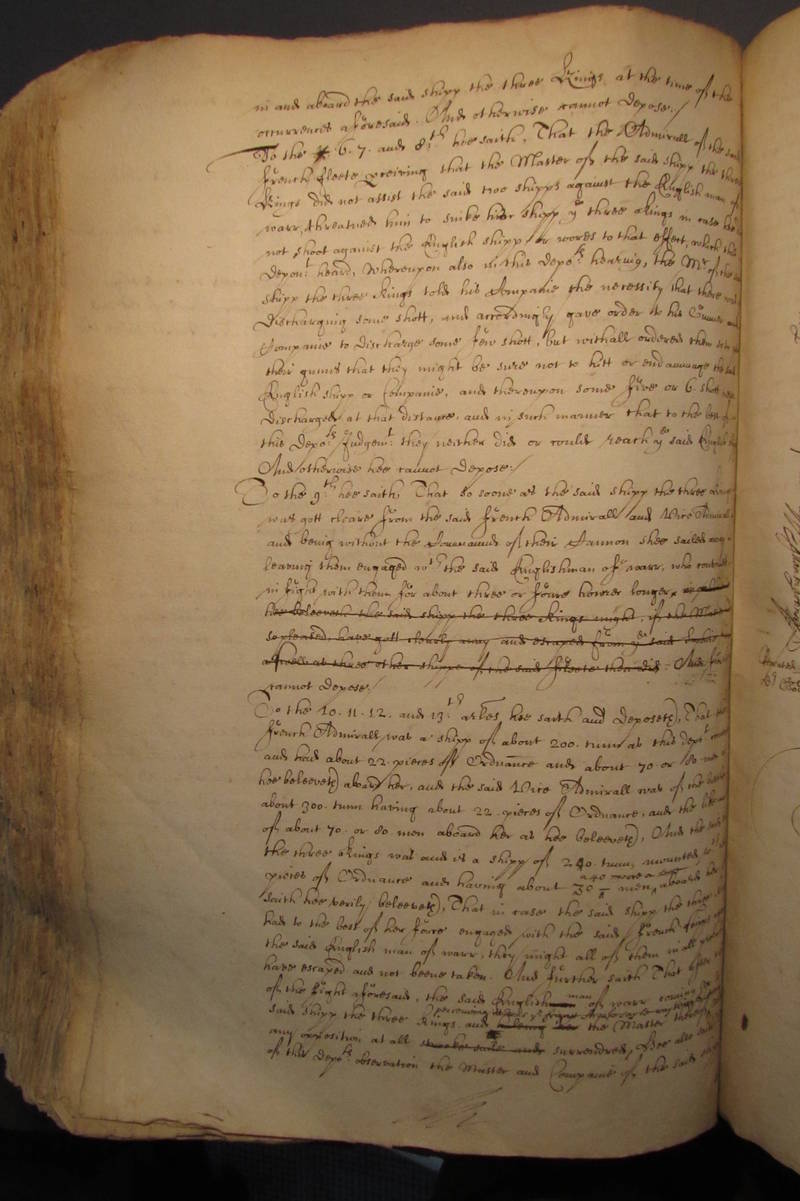 in and aboard the said shipp the three Kings at the time of the
occurrences aforesaid. And otherwise cannot depose./
To the 6. 7. and 8th hee saith, That the Admirall of the said
French fleete perceiving that the Master of the said shipp the three
Kings did not assist the said two shipps against the English man of
warr, threatned him to sinke his shipp ye three Kings in case hee
not shoot against the English shipp or words to that effect, which this
depont heard, Whereupon also in this depots hearing, the Mr of the
shipp the three Kings told his Companie the necessity that there was
discharging some shott, and accordingly gave order to his Gunner and
Companie to discharge some few shott, but withall ordered them
their gunns that they might be sure not to hitt or endammage the said
English shipp or Companie, and thereupon some five or 6. shott were
discharged at that distance, and in such manner that to the best of
this depots Judgemt they neither did or could reach ye said English
And otherwise hee cannot depose./
To the 9th hee saith, That so soone as the said shipp the three Kings
was gott cleare from the said French Admirall and Vice Admirall
and being without the Commaund of their Cannon shee sailed away
leaving them engaged wth the said Englishman of warr, who continued
in fight with them for about three or foure howers longer
hee beleeveth the said shipp the three Kings might, if the Master
so pleased, have gott clearly away and escaped from ye said
as well as three other shipps of the said fleete then did. And
cannot depose./
To the 10. 11. 12. and 13th arles hee saith and deposeth, That the
French Admirall was a shipp of about 200. tunn as this depot
and had about 22. pieces of Ordnance and about 70. or 80. men
hee beleeveth aboard her, and the said Vice Admirall was of the
about 300. tunn having about 22. pieces of Ordnance, and the like
of about 70. or 80 men aboard her as hee beleeveth, And the
the three Kings was and is a shipp of 240. tunn, mounted
pieces of Ordnance and having about 30 men aboard her
saith hee verily beleeveth, That in case the said shipp the three
had to the best of her force engaged with the said French
the said English man of warr, they might all of them
have escaped and not beene taken. And further saith That after
of the fight aforesaid, the said English man of warr coming
said shipp the three Kings, and the Master
any opposition at all surrendred, Hee also
of this depots observation the Master and Companie of the said